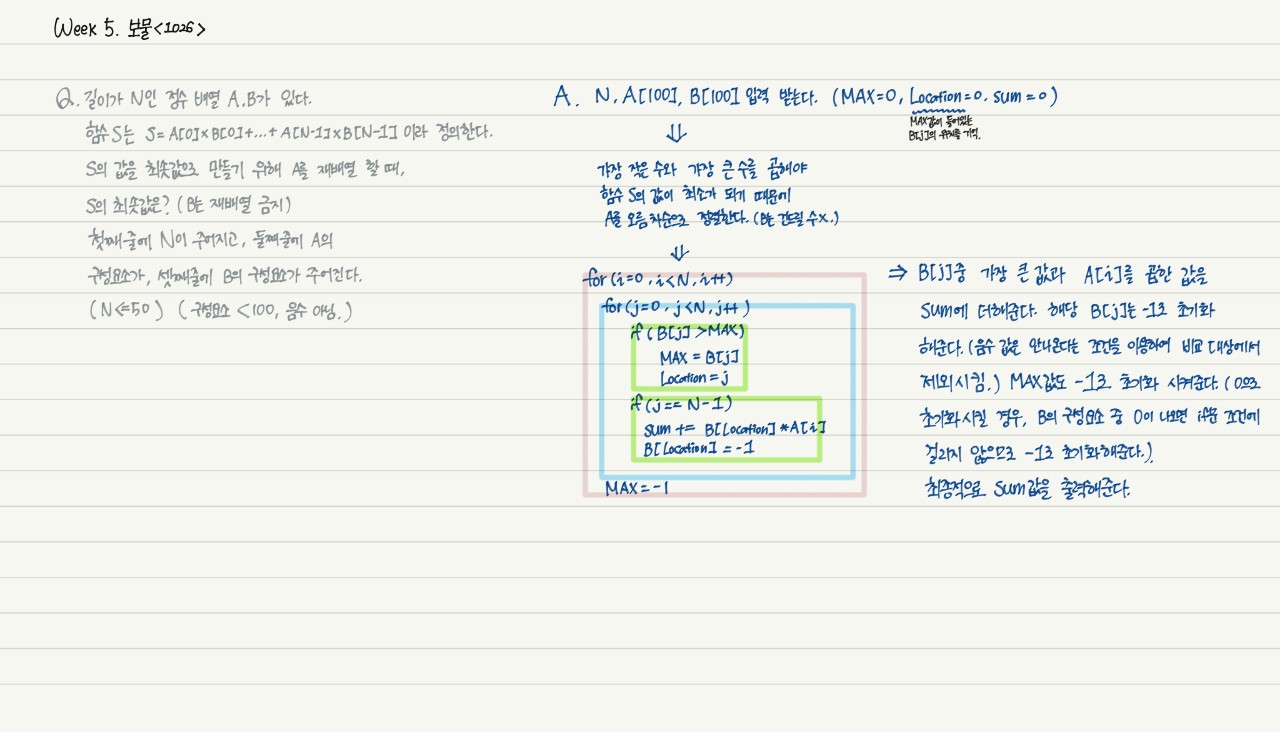 Week 5. 보물<1026>
Q. 길이가 N인 정수 배열 A, B가 있다.
함수 S는 S = A[0]×B[0]+...+A[N-1]×B[N-1] 이라 정의한다.
S의 값을 최솟값으로 만들기 위해 A를 재배열 할 때,
S의 최솟값은? (B는 재배열 금지)
첫째줄에 N이 주어지고, 둘째줄에 A의
구성요소가, 셋째줄에 B의 구성요소가 주어진다.
(N<=50) (구성요소 <100, 음수 아님.)
A. N, A[100], B[100] 입력 받는다. (MAX=0, Location=0, sum=0)
MAX값이 들어있는
B[j]의 위치를 기억.
⇓
가장 작은 수와 가장 큰 수를 곱해야
함수 S의 값이 최소가 되기 때문에
A를 오름차순으로 정렬한다. (B는 건드릴 수 x.)
⇓
for (i=0, i<N, i++)
for (j=0, j<N, j++)
if (B[j] >MAX)
MAX = B[j]
Location = j
if (j== N-1)
sum += B[Location] *A[i]
B[Location] = -1
MAX=-1
⇒ B[j]중 가장 큰 값과 A[i]를 곱한 값을
sum에 더해준다. 해당 B[j]는 -1로 초기화
해준다. (음수 값은 안나온다는 조건을 이용하여 비교 대상에서
제외시킴.) MAX값도 -1로 초기화 시켜준다. (0으로
초기화시킬 경우, B의 구성요소 중 0이 나오면 if문 조건에
걸리지 않으므로 -1로 초기화해준다.).
최종적으로 sum값을 출력해준다.